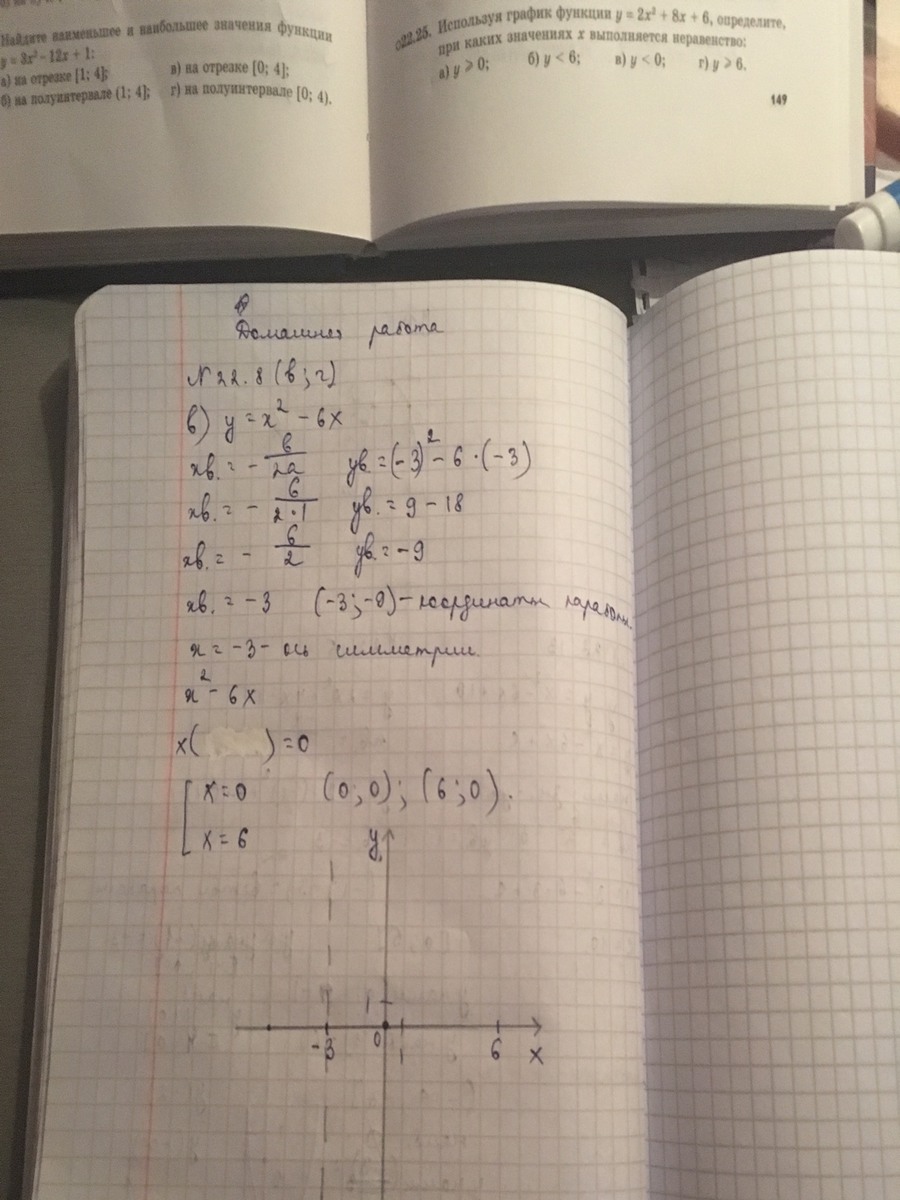 Найдите наименьшее и наибольшее значения функции
y = 3x² – 12x + 1:
а) на отрезке [1; 4];
в) на отрезке [0; 4];
б) на полуинтервале (1; 4];
г) на полуинтервале [0; 4).
о22.25. Используя график функции y = 2x² + 8x + 6, определите,
при каких значениях x выполняется неравенство:
а) y ⩾ 0;
б) y < 6;
в) y < 0;
г) y ⩾ 6.
149
Домашняя работа
N 22.8 (в; г)
в) y = x² - 6x
xв. = - в/2a yв = (-3)² - 6 · (-3)
xв. = - 6/2·1 yв. = 9 - 18
xв. = - 6/2 yв. = -9
xв. = -3 (-3; -9) - координаты параболы.
x = -3 - ось симметрии.
x² - 6x
x( ) = 0
x = 0 (0; 0); (6; 0).
x = 6
y
1
-3 0 1 6 x